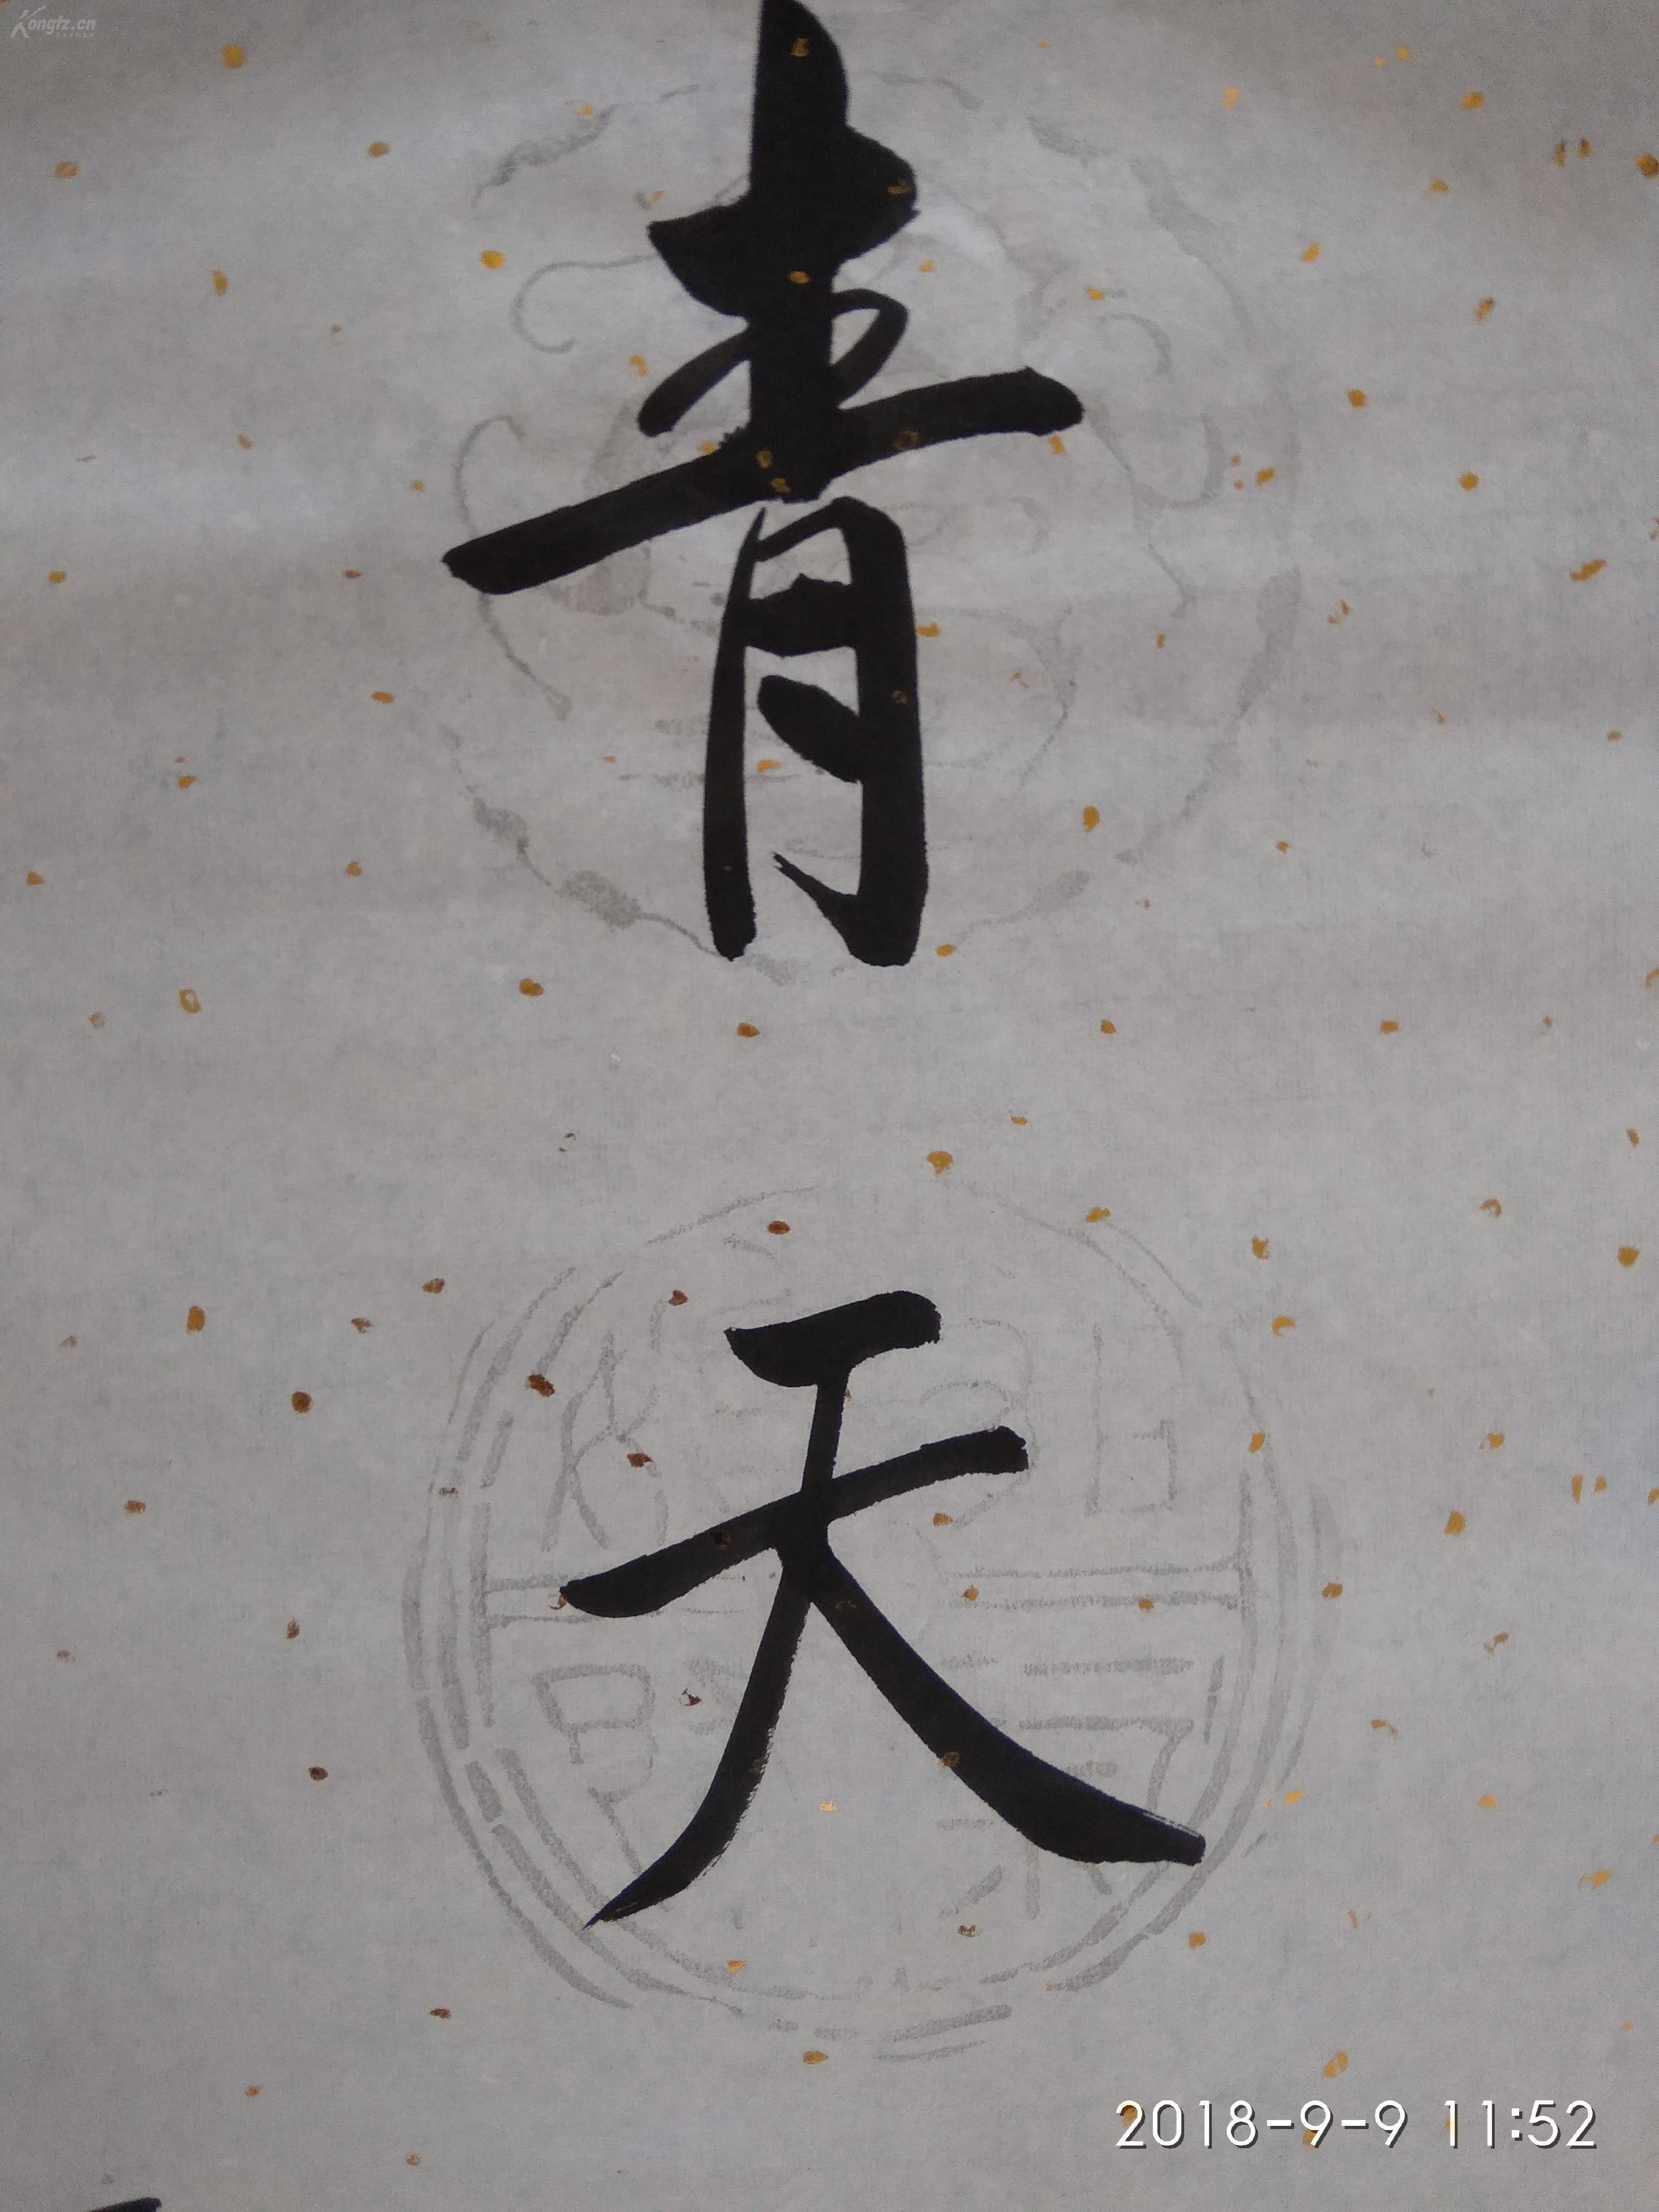 Kongfz.cn
青
天
2018-9-9 11:52